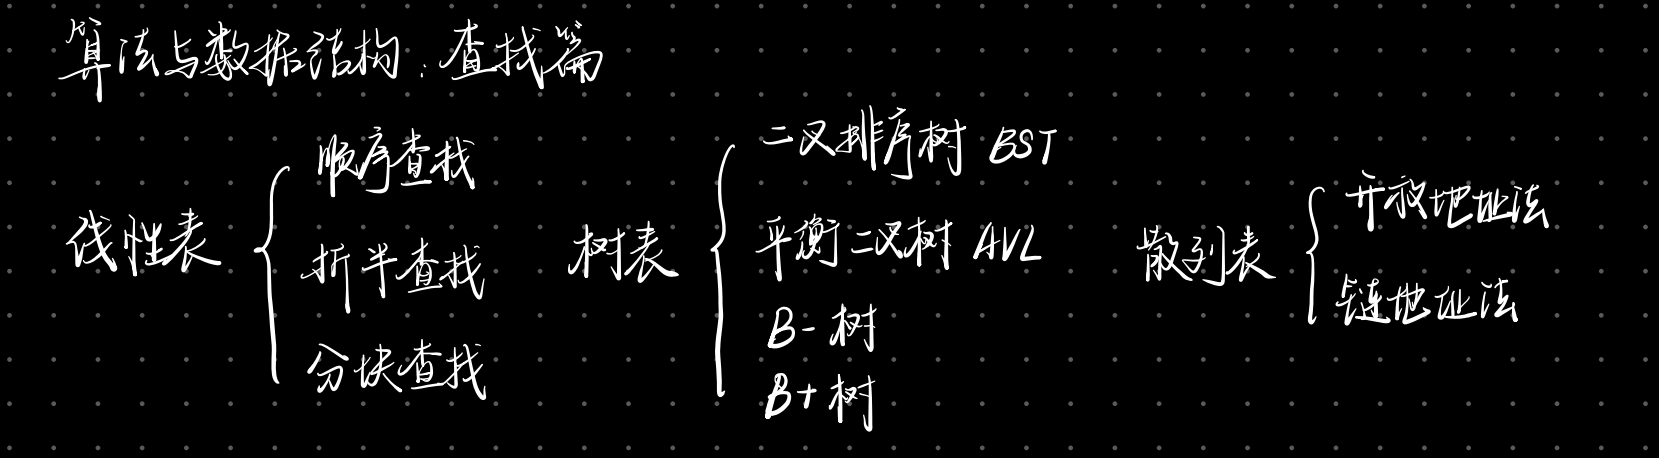 算法与数据结构：查找篇
线性表
顺序查找
折半查找
分块查找
树表
二叉排序树 BST
平衡二叉树 AVL
B-树
B+树
散列表
开放地址法
链地址法